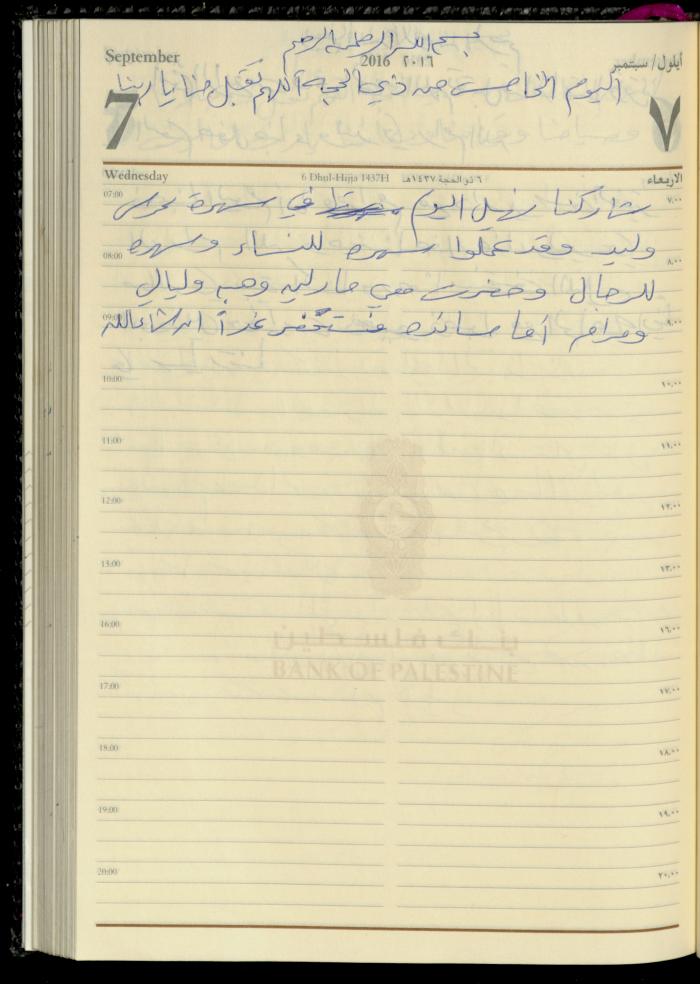 بسم الله الرحمن الرحيم
September
2016 ٢٠١٦
أيلول/سبتمبر
اليوم الخامس من ذي الحجة اللهم تقبل منا يا ربنا
7
٧
Wednesday
6 Dhul-Hijja 1437H
٦ ذو الحجة ١٤٣٧هـ
الاربعاء
07:00 ٧،٠٠
شاركنا نهيل اليوم في سهرة عرس
وليد وقد عملوا سهره للنساء وسهره
08:00 ٨،٠٠
للرجال وحضرت معي مارلين وهبه وليالي
09:00 ٩،٠٠
ومرام أما سائده فستحضر غداً ان شاءالله
10:00 ١٠،٠٠
11:00 ١١،٠٠
12:00 ١٢،٠٠
13:00 ١٣،٠٠
16:00 ١٦،٠٠
بنك فلسطين
BANK OF PALESTINE
17:00 ١٧،٠٠
18:00 ١٨،٠٠
19:00 ١٩،٠٠
20:00 ٢٠،٠٠